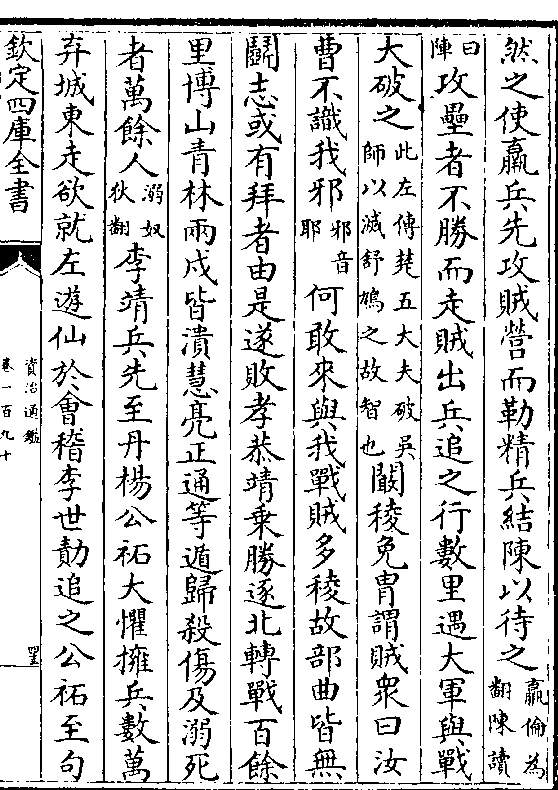 然之使羸兵先攻賊營而勒精兵結陳以待之羸倫為翻陳讀
曰陣攻壘者不勝而走賊出兵追之行數里遇大軍與戰
大破之此左傳楚五大夫破吳師以滅舒鳩之故智也闞稜免胄謂賊衆曰汝
曹不識我邪邪音耶何敢來與我戰賊多稜故部曲皆無
鬭志或有拜者由是遂敗孝恭靖乗勝逐北轉戰百餘
里博山青林兩戍皆潰慧亮正通等遁歸殺傷及溺死
者萬餘人溺奴狄翻李靖兵先至丹楊公祏大懼擁兵數萬
弃城東走欲就左遊仙於會稽李世勣追之公祏至句
欽定四庫全書
資治通鑑
卷一百九十